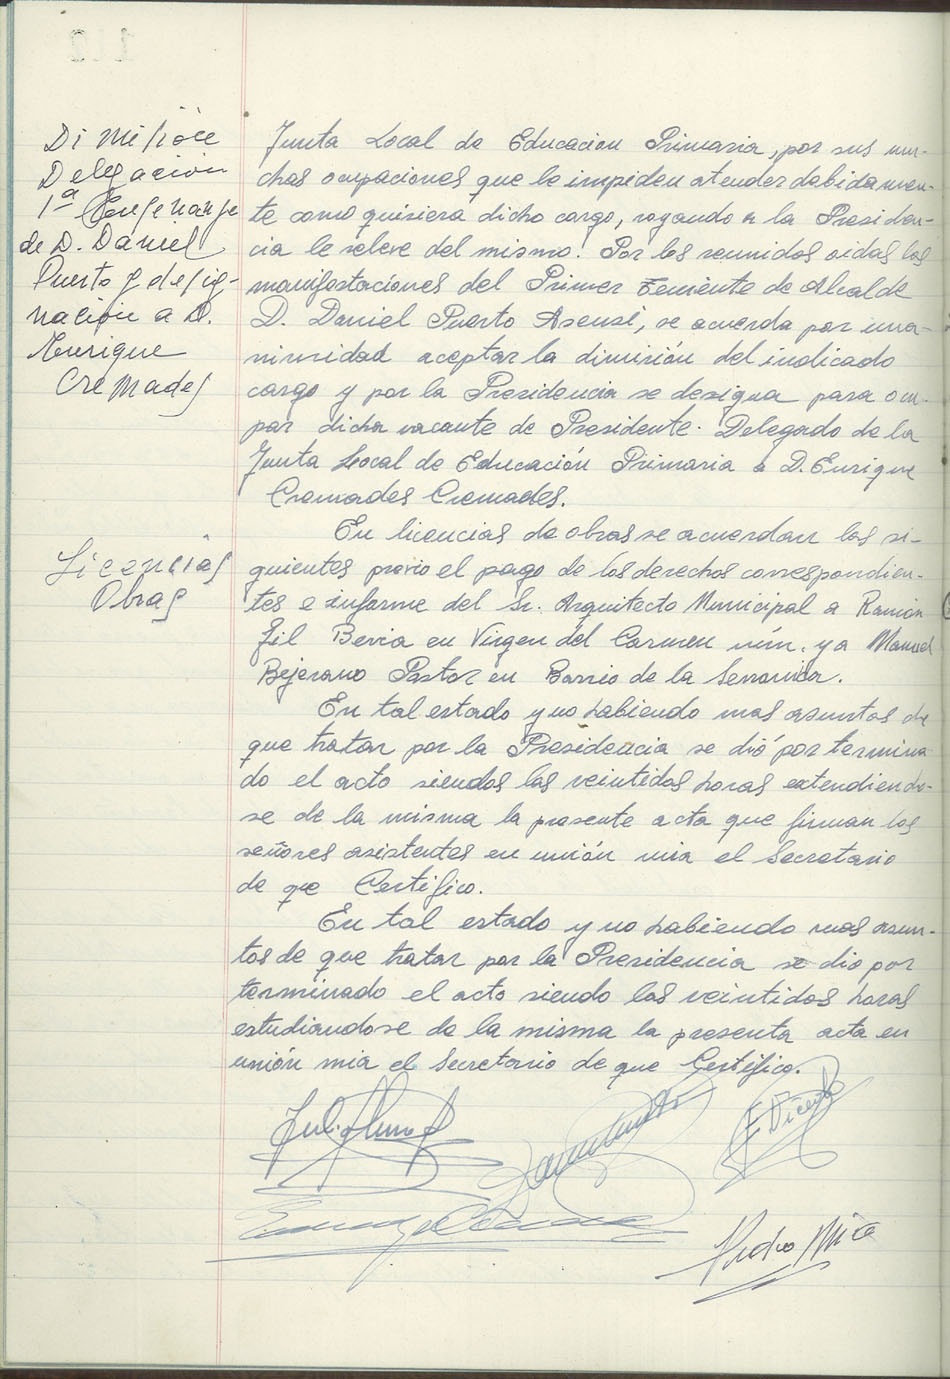 Dimisión
Delegación
1ª Enseñanza
de D. Daniel
Puerto y desig-
nación a D.
Enrique
Cremades
Junta Local de Educación Primaria, por sus mu-
chas ocupaciones que le impiden atender debidamen-
te como quisiera dicho cargo, rogando a la Presiden-
cia le releve del mismo. Por los reunidos oidas las
manifestaciones del Primer Teniente de Alcalde
D. Daniel Puerto Asensi, se acuerda por una-
nimidad aceptar la dimisión del indicado
cargo y por la Presidencia se designa para ocu-
par dicha vacante de Presidente-Delegado de la
Junta Local de Educación Primaria a D. Enrique
Cremades Cremades.
Licencias
Obras
En licencias de obras se acuerdan las si-
guientes previo el pago de los derechos correspondien-
tes e informe del Sr. Arquitecto Municipal a Ramón
Gil Bevia en Virgen del Carmen núm. y a Manuel
Bejerano Pastor en Barrio de la
En tal estado y no habiendo mas asuntos de
que tratar por la Presidencia se dió por termina
do el acto siendos las veintidos horas extendiendo-
se de la misma la presente acta que firman los
señores asistentes en unión mia el Secretario
de que Certifico.
En tal estado y no habiendo mas asun-
tos de que tratar por la Presidencia se dio por
terminado el acto siendo las veintidos horas
estudiandose de la misma la presenta acta en
unión mia el Secretario de que Certifico.
E Vicente
Pedro Mira